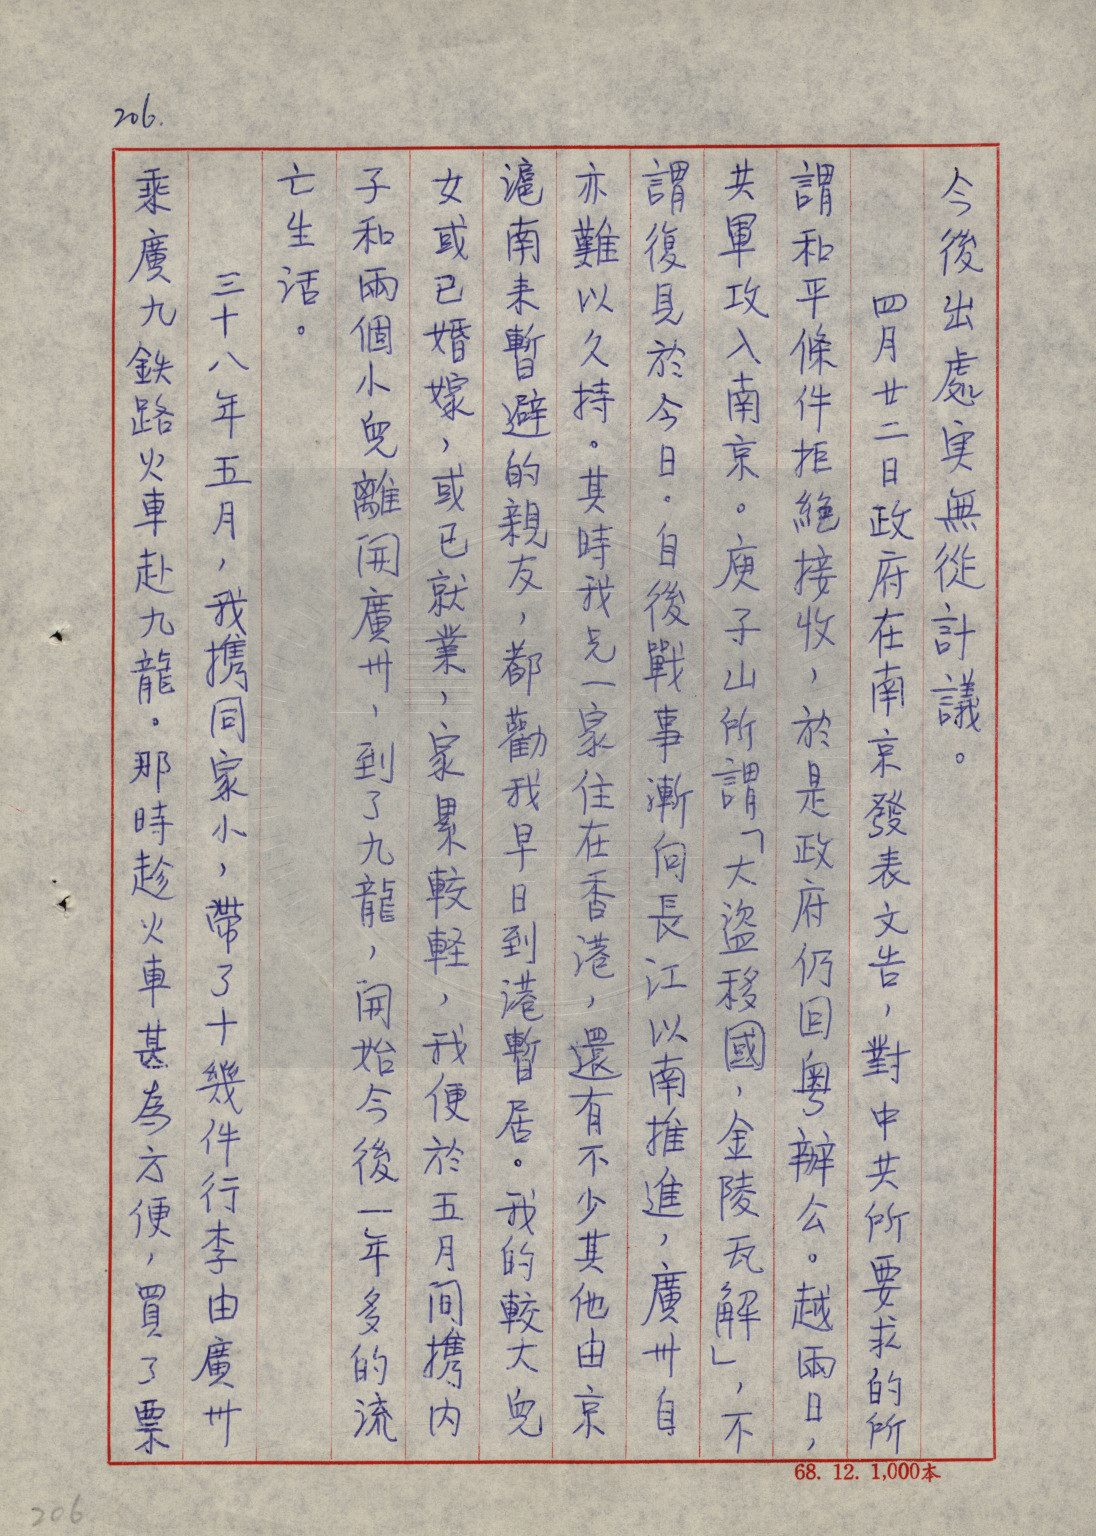 206.
今後出處実無從計議。
四月廿二日政府在南京發表文告，對中共所要求的所
謂和平條件拒絕接收，於是政府仍回粵辦公。越兩日，
共軍攻入南京。庾子山所謂「大盜移國，金陵瓦解」，不
謂復見於今日。自後戰事漸向長江以南推進，廣州自
亦難以久持。其時我兄一家住在香港，還有不少其他由京
滬南来暫避的親友，都勸我早日到港暫居。我的較大兒
女或已婚嫁，或已就業，家累較軽，我便於五月间携内
子和兩個小兒離開廣州，到了九龍，開始今後一年多的流
亡生活。
三十八年五月，我携同家小，帶了十幾件行李由廣州
乘廣九鉄路火車赴九龍。那時趁火車甚為方便，買了票
68. 12. 1,000本
206